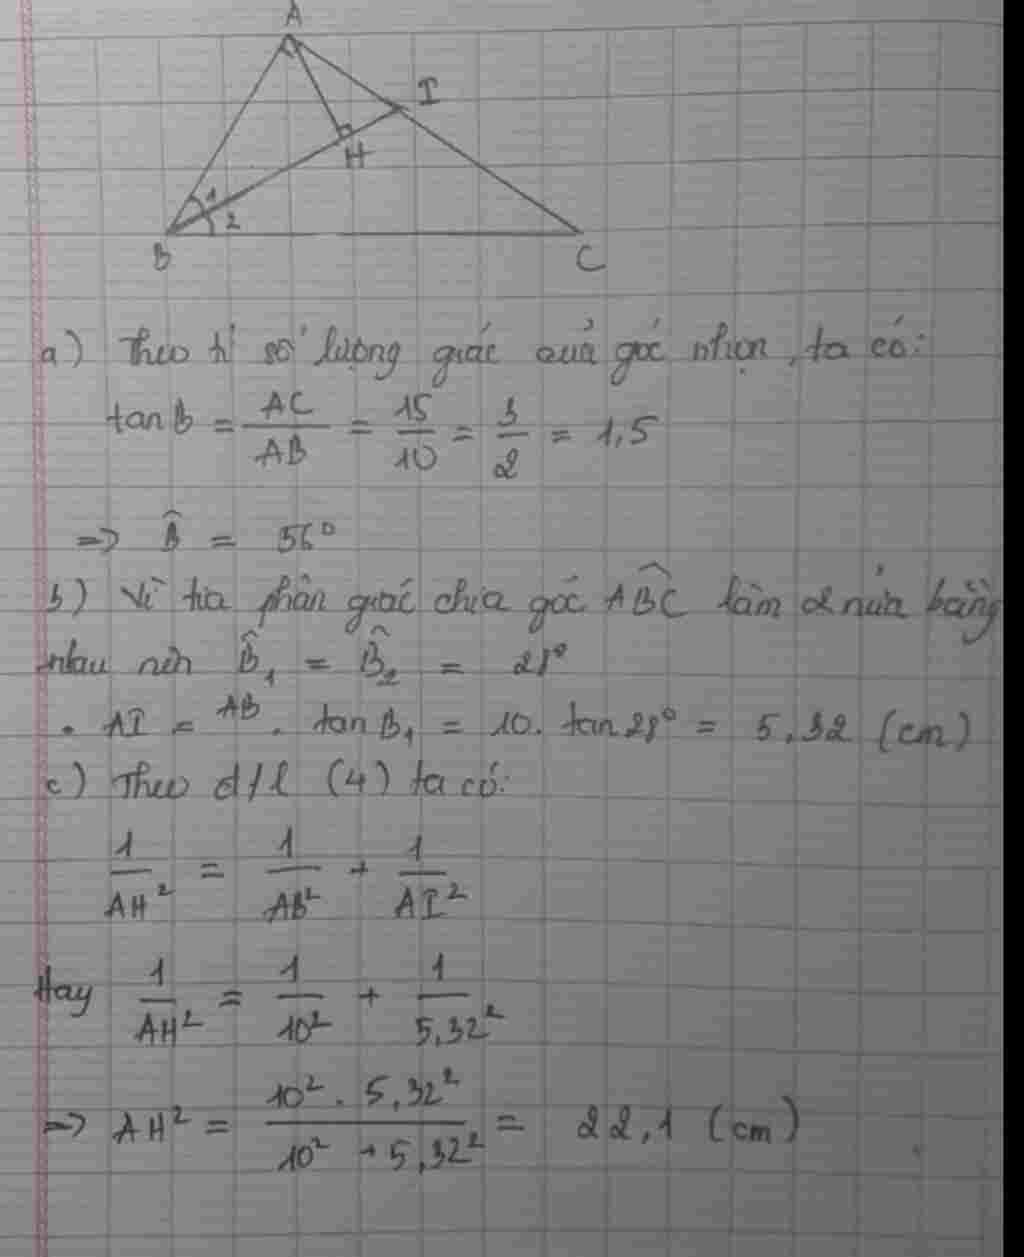 A
I
H
1
2
B
C
a) Theo tỉ số lượng giác quả góc nhọn, ta có:
tan B = AC/AB = 15/10 = 3/2 = 1,5
=> B̂ = 56°
b) Vì tia phân giác chia góc ABC̑ làm 2 nửa bằng
nhau nên B̂₁ = B̂₂ = 28°
• AI = AB . tan B₁ = 10. tan 28° = 5,32 (cm)
c) Theo đ/l (4) ta có:
1/AH² = 1/AB² + 1/AI²
Hay 1/AH² = 1/10² + 1/5,32²
=> AH² = 10² . 5,32² / 10² + 5,32² = 22,1 (cm)